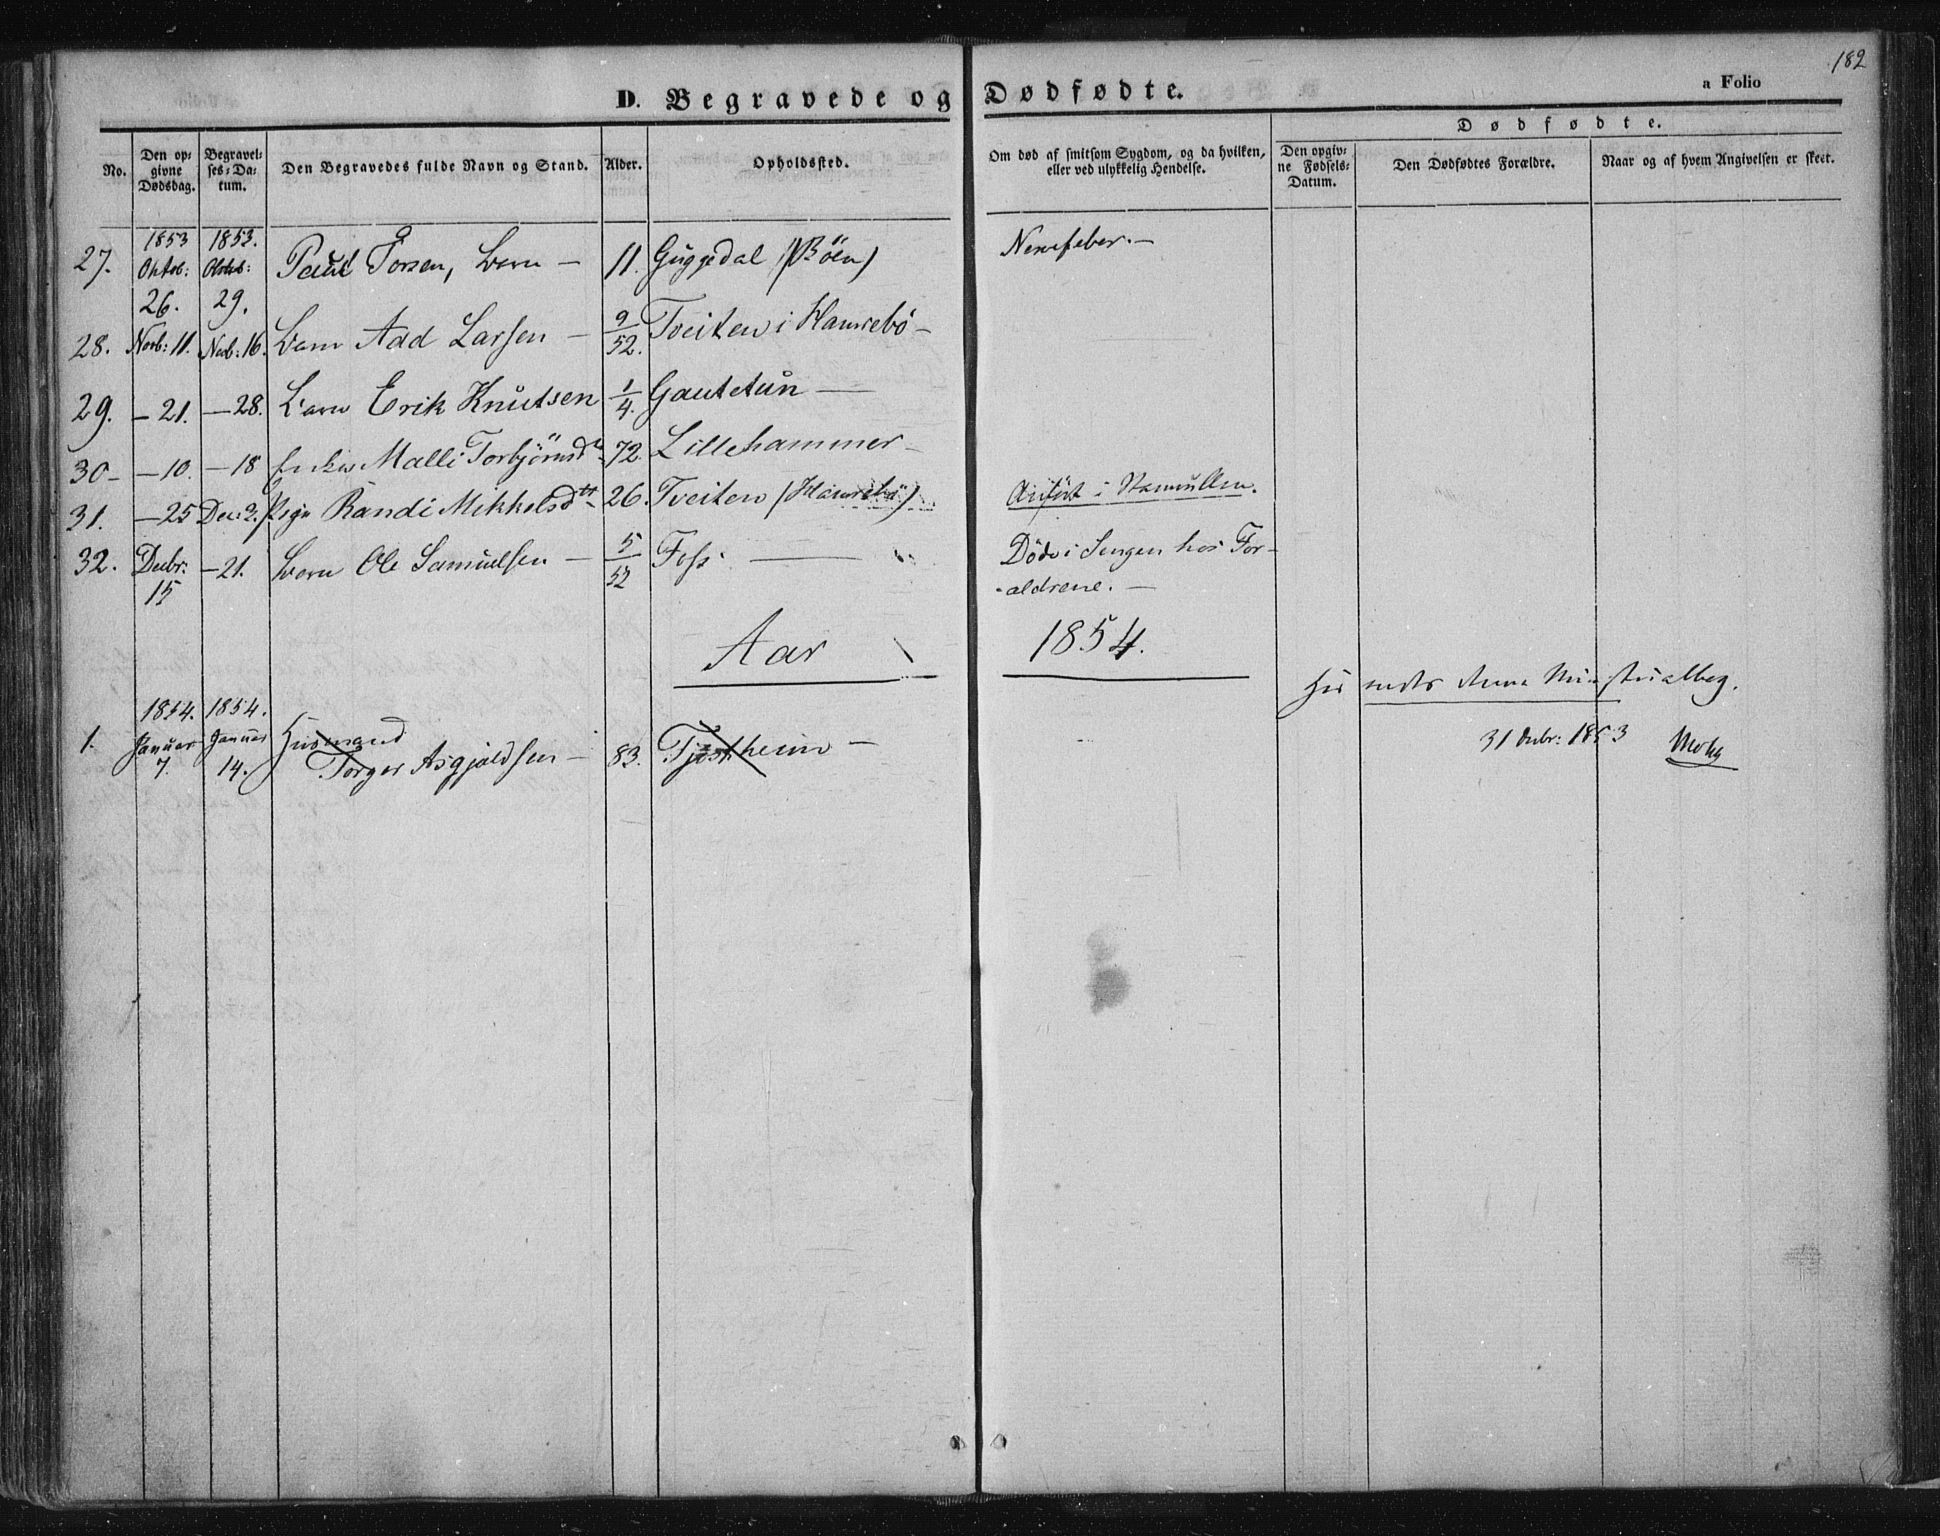 182
D. Begravede og Dødfødte.
a Folio
No.
Den opgivne Dødsdag.
Begravelses-Datum.
Den Begravedes fulde Navn og Stand.
Alder.
Opholdssted.
Om død af smitsom Sygdom, og da hvilken, eller ved ulykkelig Hendelse.
Dødfødte.
Den opgivne Fødsels-Datum.
Den Dødfødtes Forældre.
Naar og af hvem Angivelsen er skeet.
27. 1853 Oktob: 26. 1853. Oktob: 29. Paul Torsen, Barn — 11. Guggedal (Böen) Nervefeber. —
28. Novb: 11. Novb: 16. Barn Aad Larsen — 9/52. Tveiten i Hamrebö —
29. — 21. — 28. Barn Erik Knutsen 1/4. Gautetun —
30 — — 10. — 18 Enke Malli Torbjörnsdr 72. Lillehammer —
31. — 25 Dec: 2. Pige Randi Mikkelsdtr 26. Tveiten (Hamrebö) Anfört i
32. Decbr: 15 — 21. Barn Ole Samuelsen — 5/52 Foss. — Döde i Sengen hos For-
ældrene. —
Aar 1854.
1. 1854. Januar 7. 1854. Januar 14. Husmand Torger Asgjeldsen — 83. Tjostheim —
31 Decbr: 1853